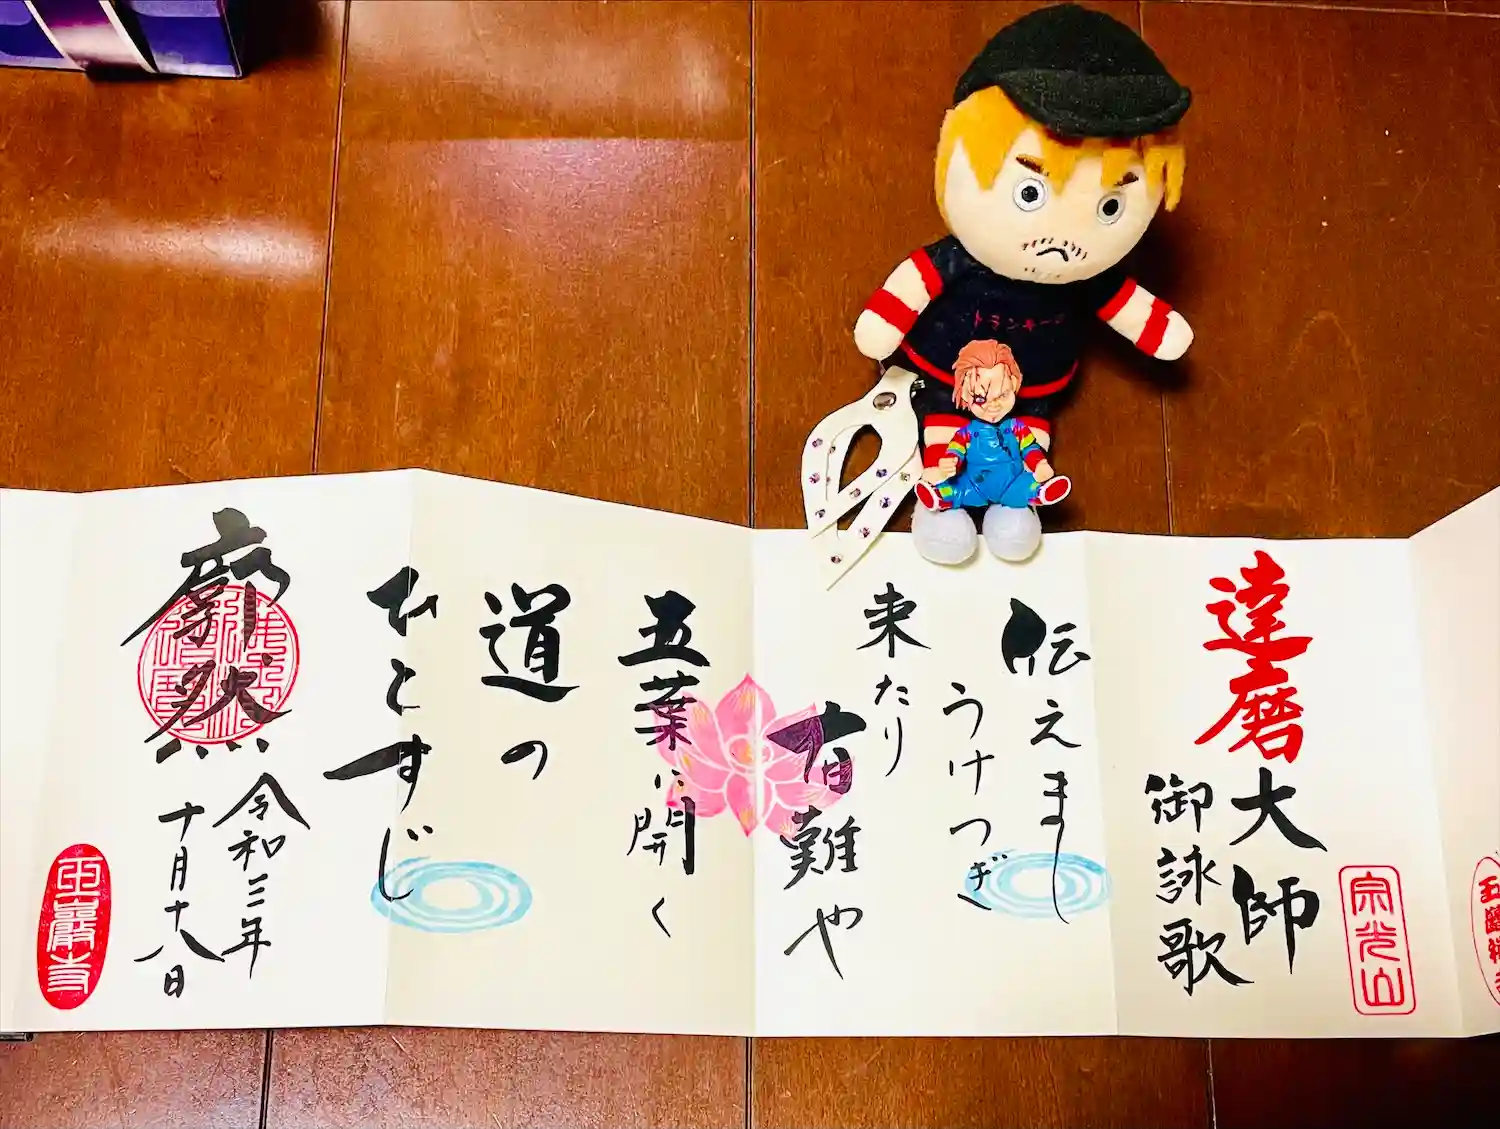 トランキー
達磨大師
御詠歌
宗光山
伝えまし
うけつぎ
来たり
有難や
五葉に開く
道の
ひとすじ
廓然
令和三年
十月十八日